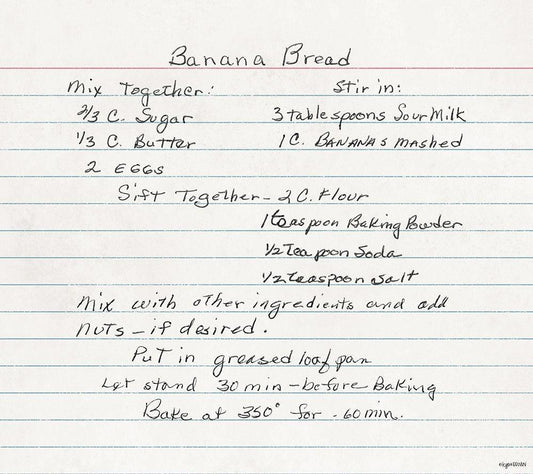 Banana Bread
Mix Together: Stir in:
2/3 C. Sugar 3 tablespoons Sour Milk
1/3 C. Butter 1 C. BANANAS mashed
2 EGGS
Sift Together - 2 C. Flour
1 teaspoon Baking Powder
1/2 teapoon Soda
1/2 teaspoon salt
Mix with other ingredients and add
nuts - if desired.
Put in greased loaf pan
Let stand 30 min - before Baking
Bake at 350° for - 60 min.